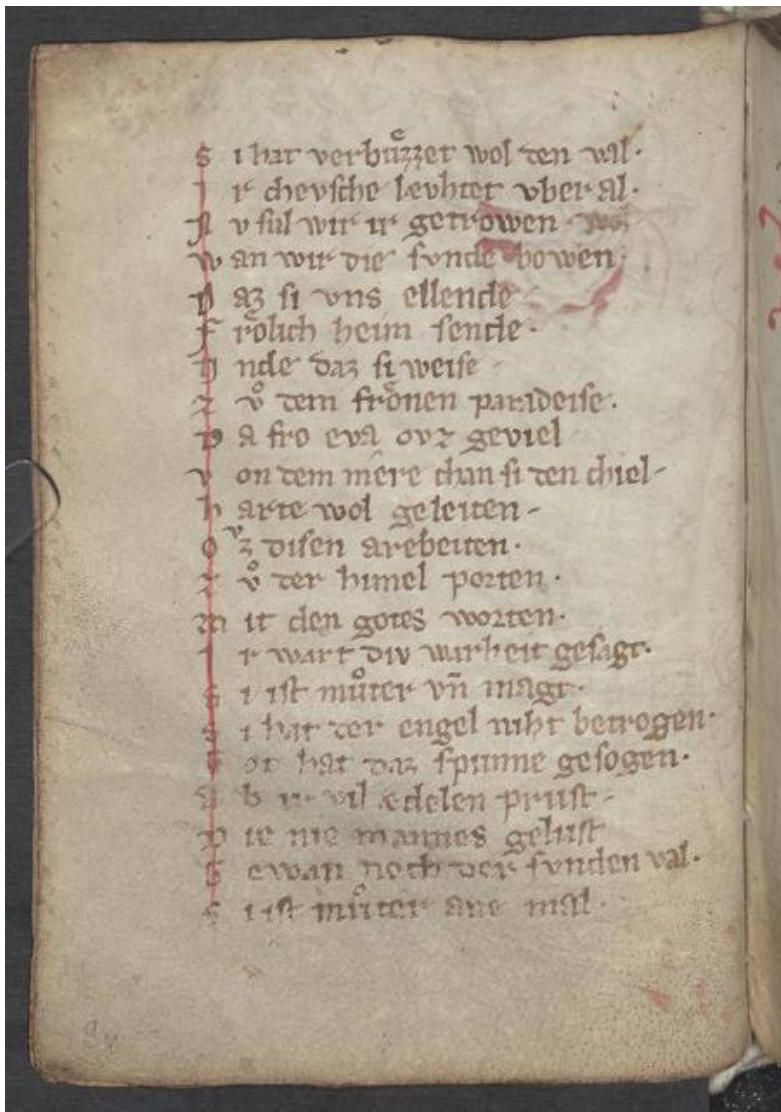 S i hat verbuͤzzet wol den val·
I r chevsche levhtet vber al·
N v sul wir ir getrowen wol
W an wir die svnde bowen·
D az si vns ellende
F rͦolich heim sende·
V nde daz si weise
Z vͦ dem frͦonen paradeise·
D a fro eva ovz geviel
V on dem mêre chan si den chiel
H arte wol geleiten
O vz disen arebeiten·
Z vͦ der himel porten·
M it den gotes worten·
I r wart div warheit gesagt·
S i ist mvͦter vn̄ magt·
S i hat der engel niht betrogen·
G ot hat daz spunne gesogen·
A b ir vil ædelen prust
D ie nie mannes gelust
G ewan noch der svnden val·
S i ist mvͦter ane mal·